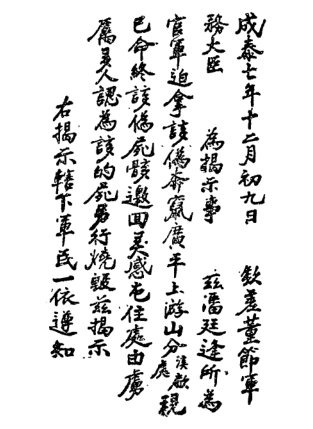 成泰七年十二月初九日 欽差董節軍
務大臣 為揭示事 茲潘廷逢所為
官軍迫拿該偽奔竄廣平上游山分溪歆處現
已命終該偽屍骸邀回灵感屯住處由虜
厲美人認為該的屍另行燒毀茲揭示
右揭示轄下軍民一依遵知